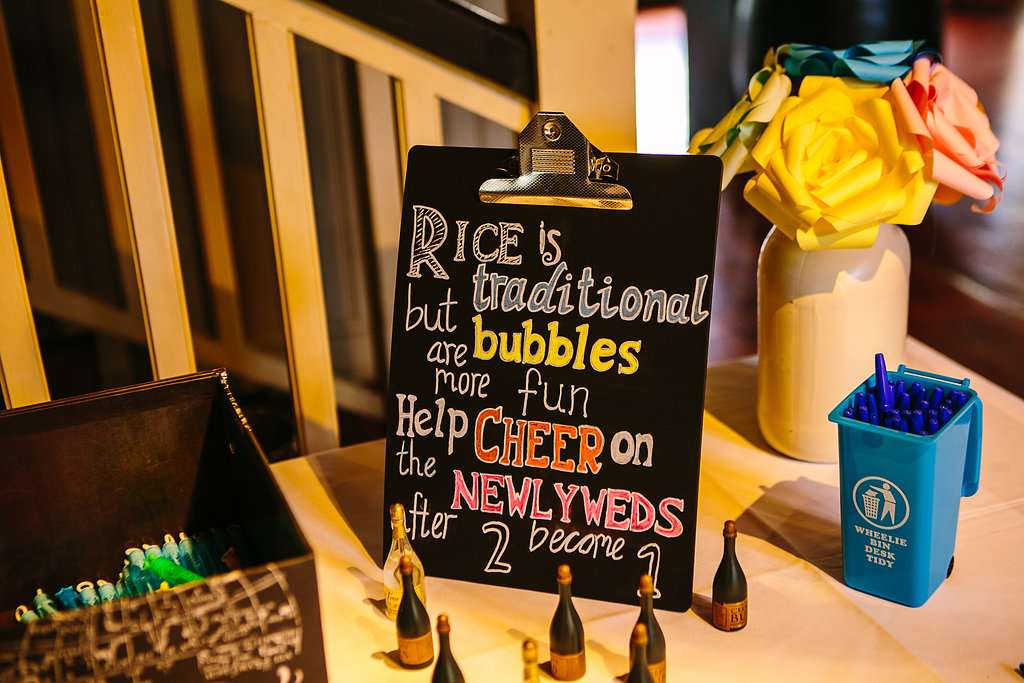 RICE is
but traditional
are bubbles
more fun
Help CHEER on
the NEWLYWEDS
after 2 become 1
WHEELIE
BIN
DESK
TIDY